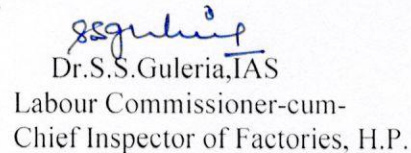 ssguleria
Dr.S.S.Guleria,IAS
Labour Commissioner-cum-
Chief Inspector of Factories, H.P.